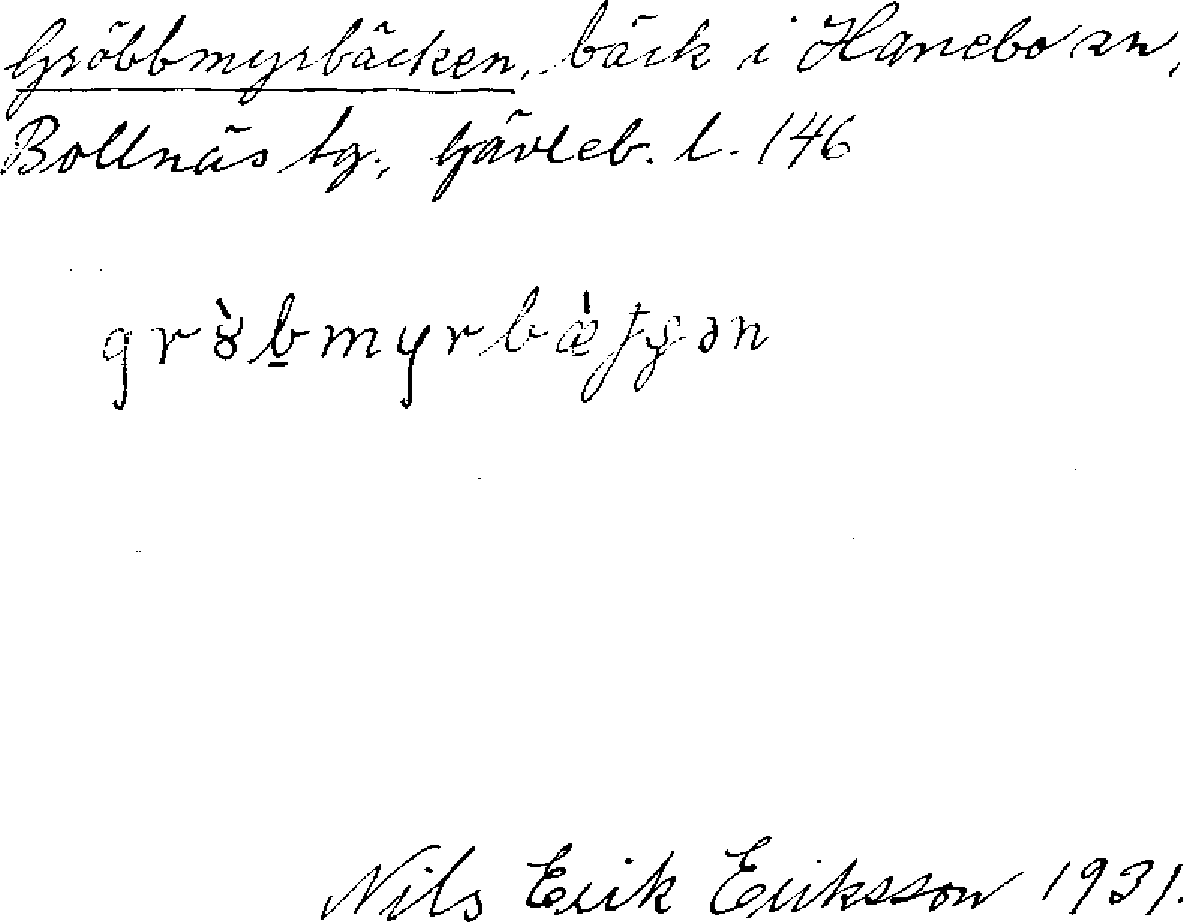 Gröbbmyrbäcken, bäck i Hanebo sn,
Bollnäs tg., Gävleb. l. 146
Nils Erik Eriksson 1931.